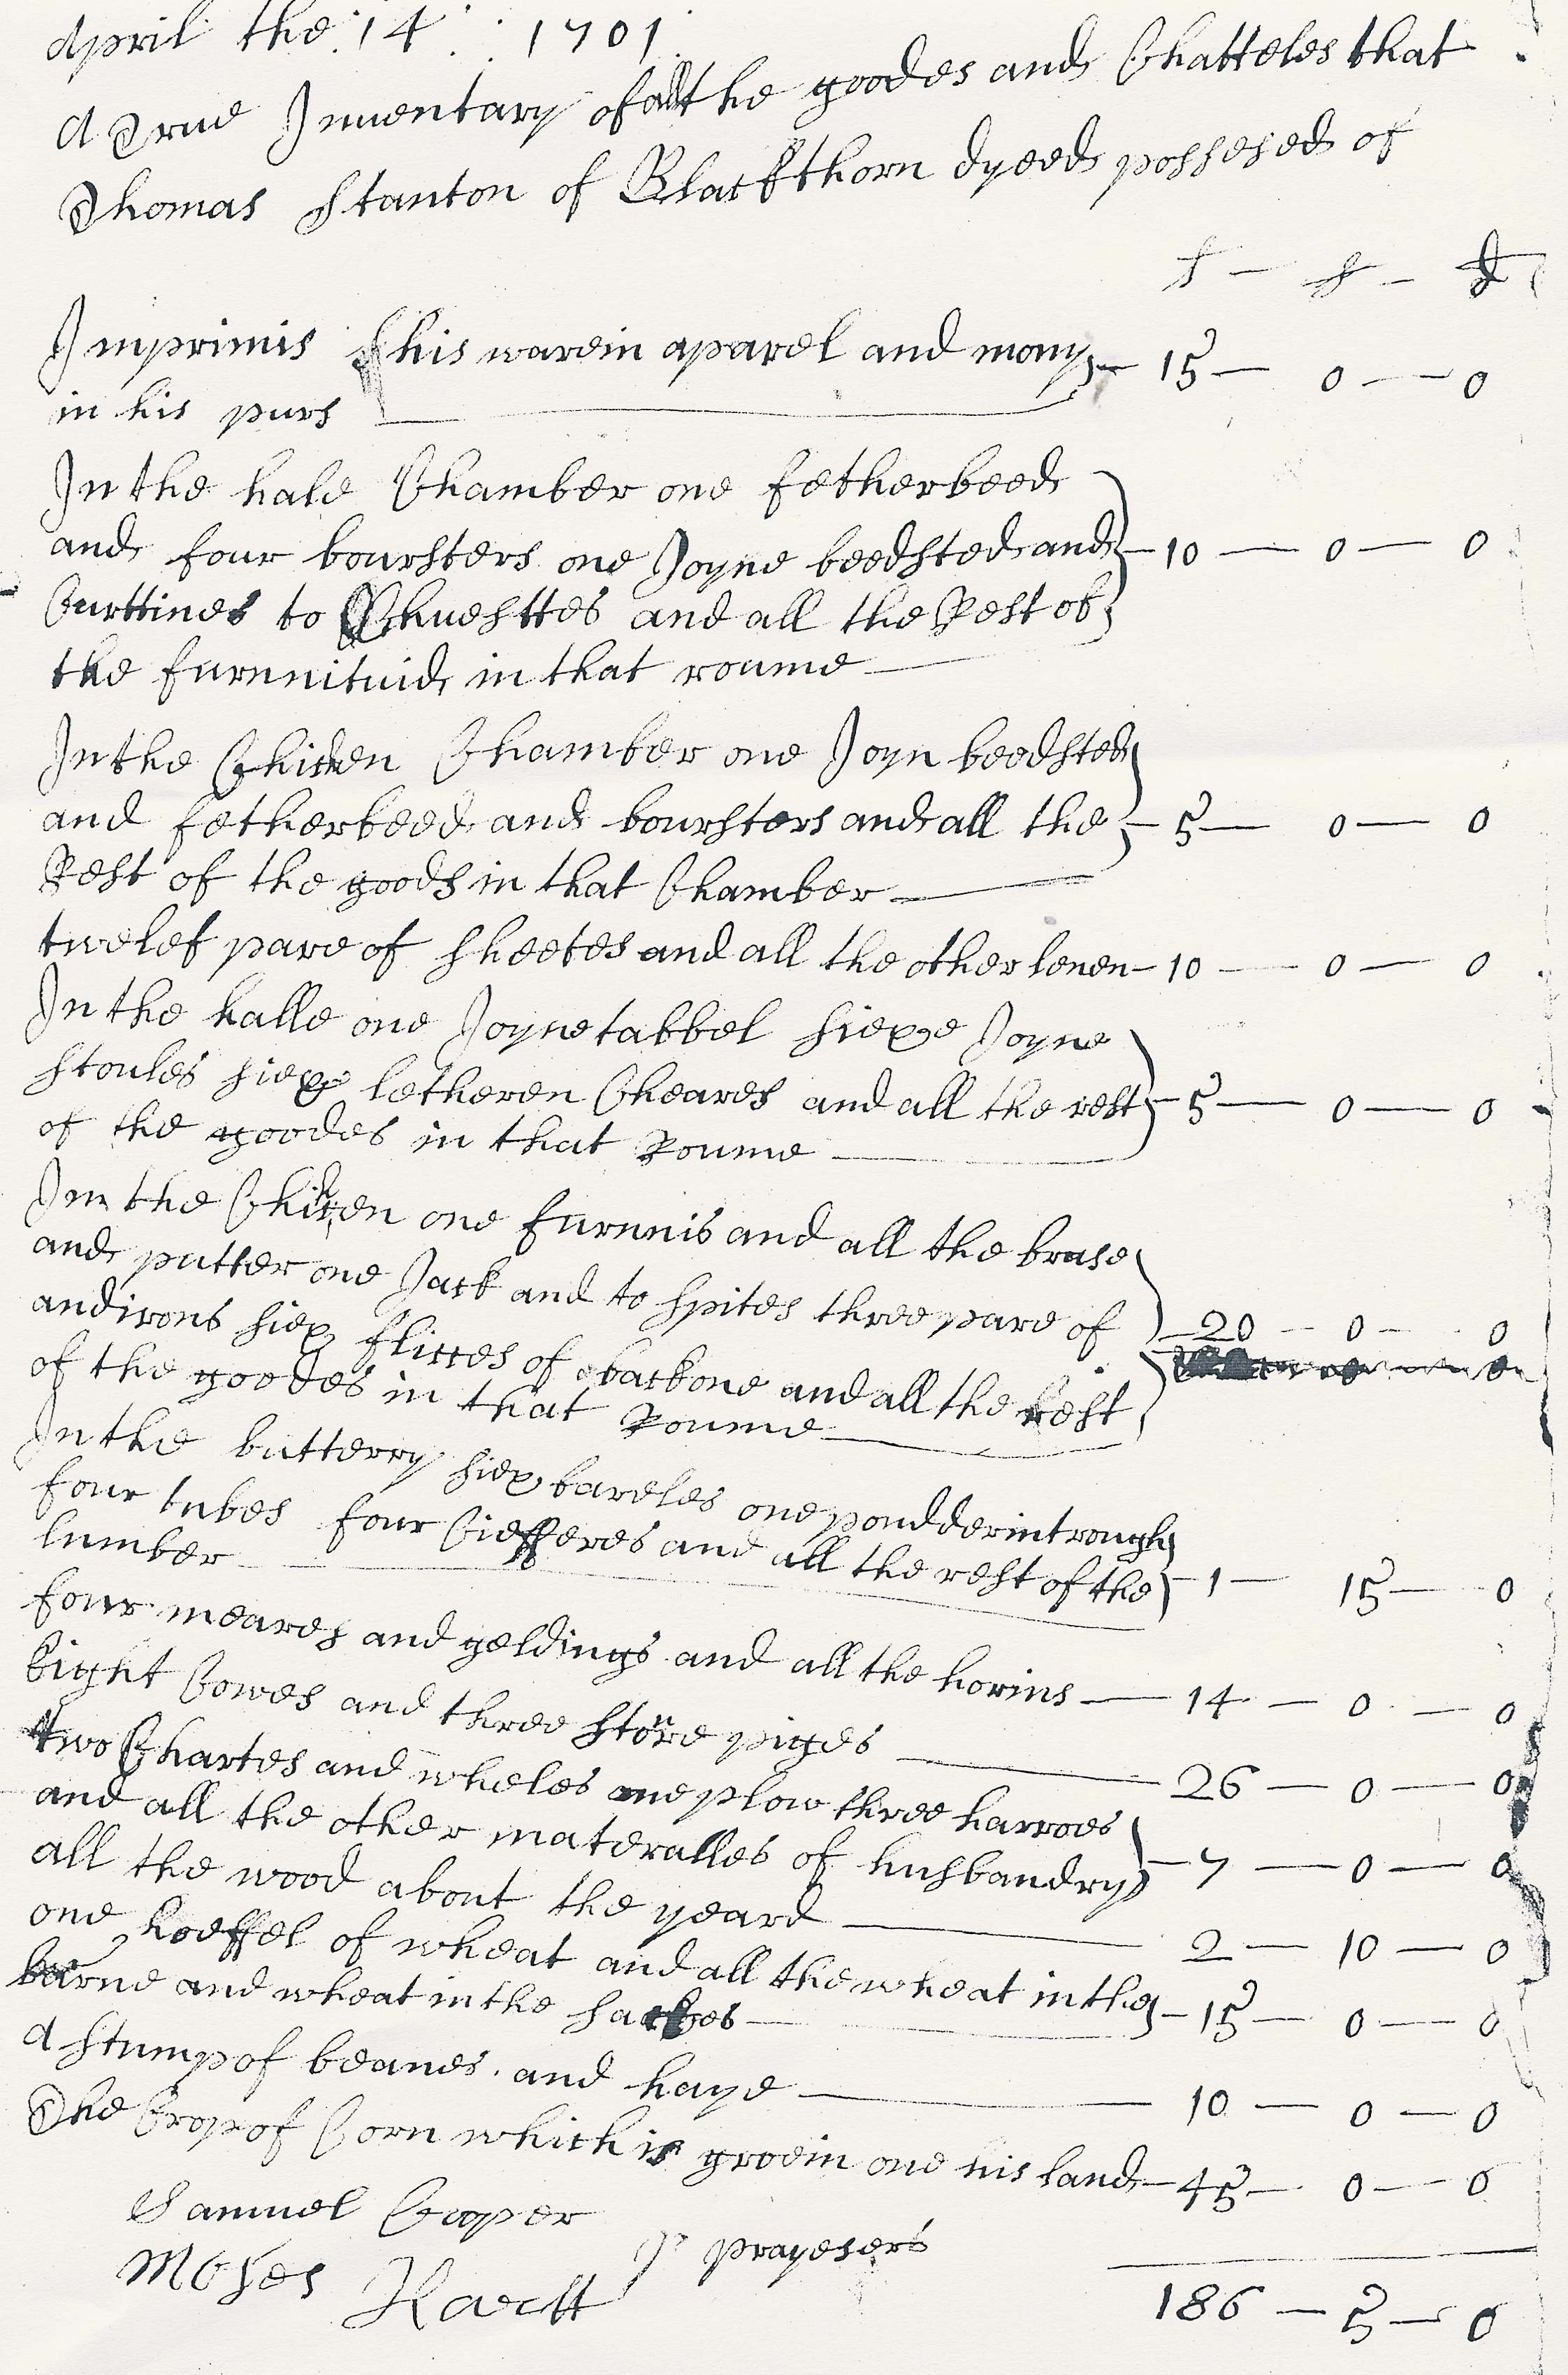 April the 14 1701
A True Inuentary of all the goodes and Chatteles that
Thomas Stanton of Blackthorn dyeed possesed of
£ — s — d
Imprimis his warein aparel and mony — 15 — 0 — 0
in his purs
In the hale Chamber one fetherbeed
and four boursters one Joyne beedsted and — 10 — 0 — 0
Curttines to Chuesttes and all the Rest of
the furnnituid in that roume
In the Chitken Chamber one Joyn beedsted
and fetherbeed and boursters and all the — 5 — 0 — 0
Rest of the goods in that Chamber
twelef pare of sheetes and all the other lenen — 10 — 0 — 0
In the halle one Joyne tabbel siexe Joyne
stoules siex letheren Cheares and all the rest — 5 — 0 — 0
of the goodes in that Roume
Inn the Chitken one furnnis and all the brase
and putter one Jack and to spites three pare of
andirons siex flittes of backone and all the Rest — 20 — 0 — 0
of the goodes in that Roume
In the butterry siex bareles one poudderin trough
four tubes four Ciefferes and all the rest of the — 1 — 15 — 0
lumber
four meares and geldings and all the horins — 14 — 0 — 0
Eight Cowes and three store piges — 26 — 0 — 0
two Chartes and wheles one plow three harroes
and all the other materalles of husbandry — 7 — 0 — 0
all the wood about the yeard — 2 — 10 — 0
one hoeffel of wheat and all the wheat in the
barne and wheat in the sackes — 15 — 0 — 0
A stump of beanes and haye — 10 — 0 — 0
The Crop of Corn which is groein one his land — 45 — 0 — 0
Samuel Cooper
prayesers
Moses
186 — 5 — 0